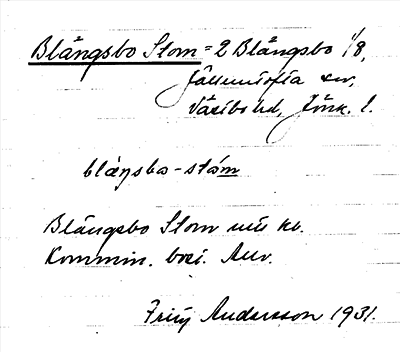 Blångsbo Stom = 2 Blångsbo 1/8,
Jällunтofta sn,
Västbo hd, Jönk. l.
blåŋsbo-stóm
Blångsbo Stom
Kommin. bost.
Frity Andersson 1931.